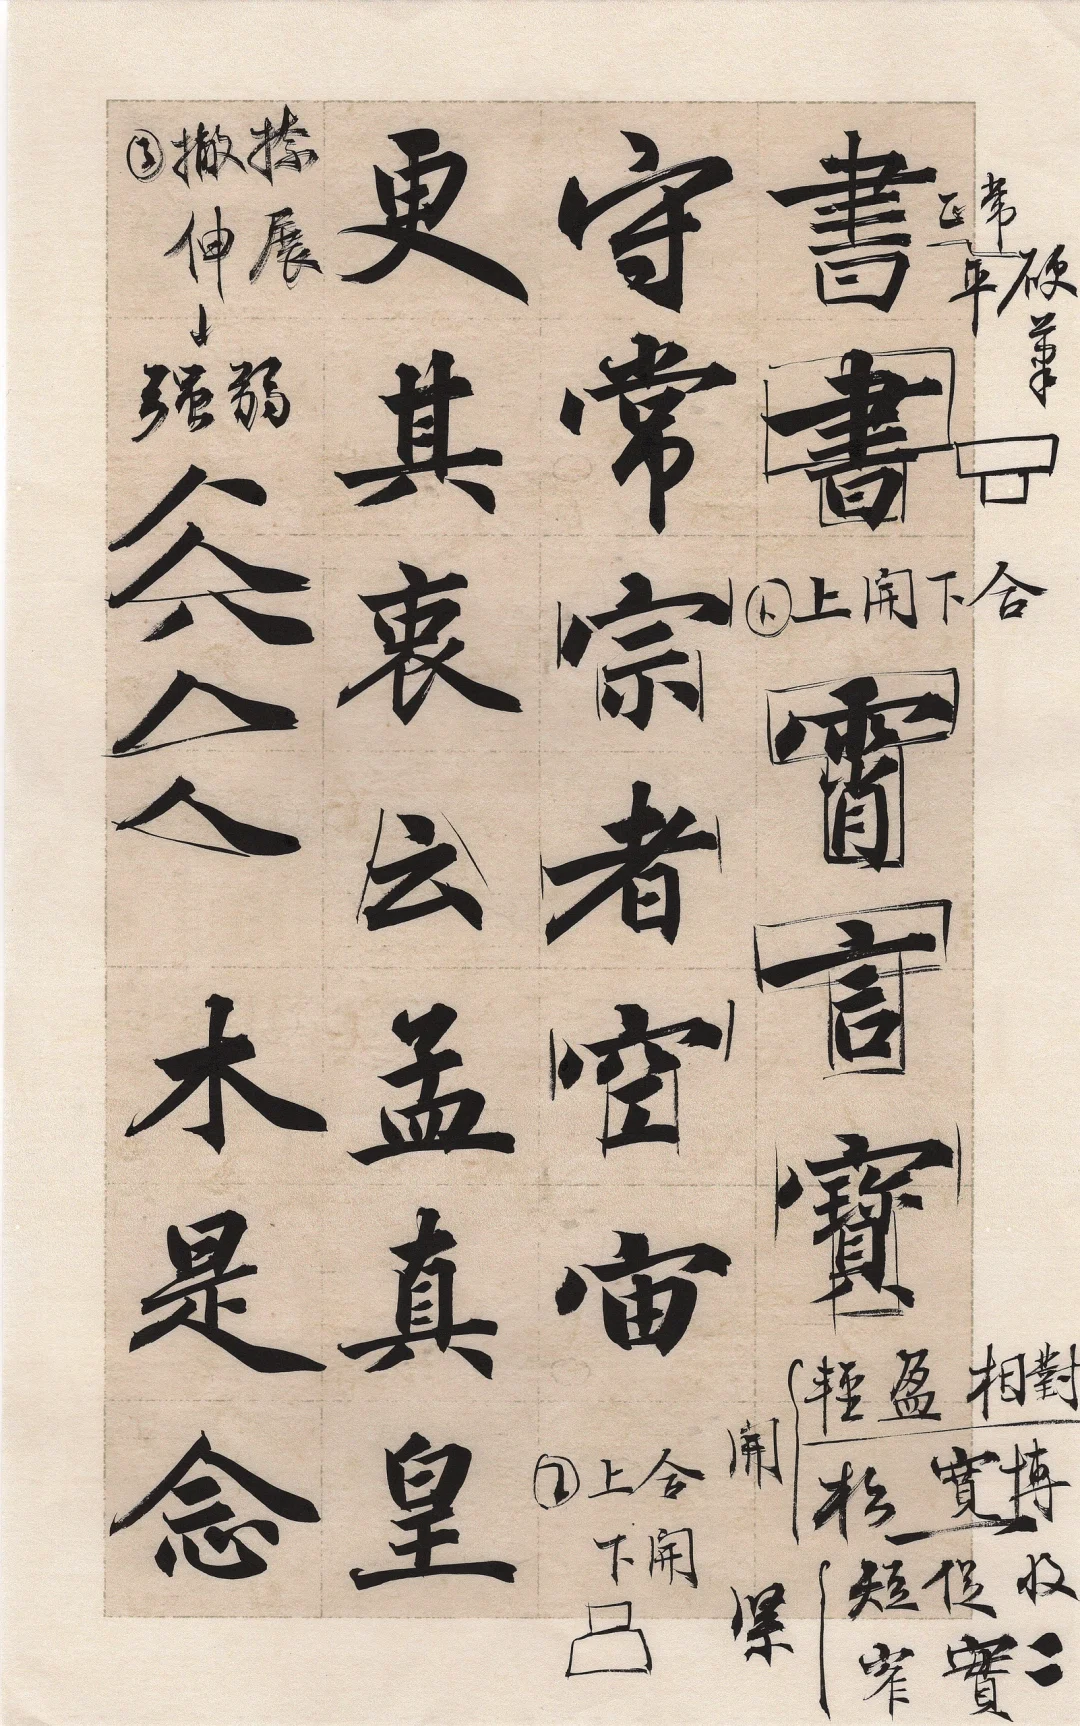 書書霄言寳
正常
平
硬筆
①上開下合
守常宗者空宙
②上合
下開
更其衷云孟真皇
③撇捺
伸展
强弱
人木是念
開
輕盈相對
松寬博
緊
短促收
窄實